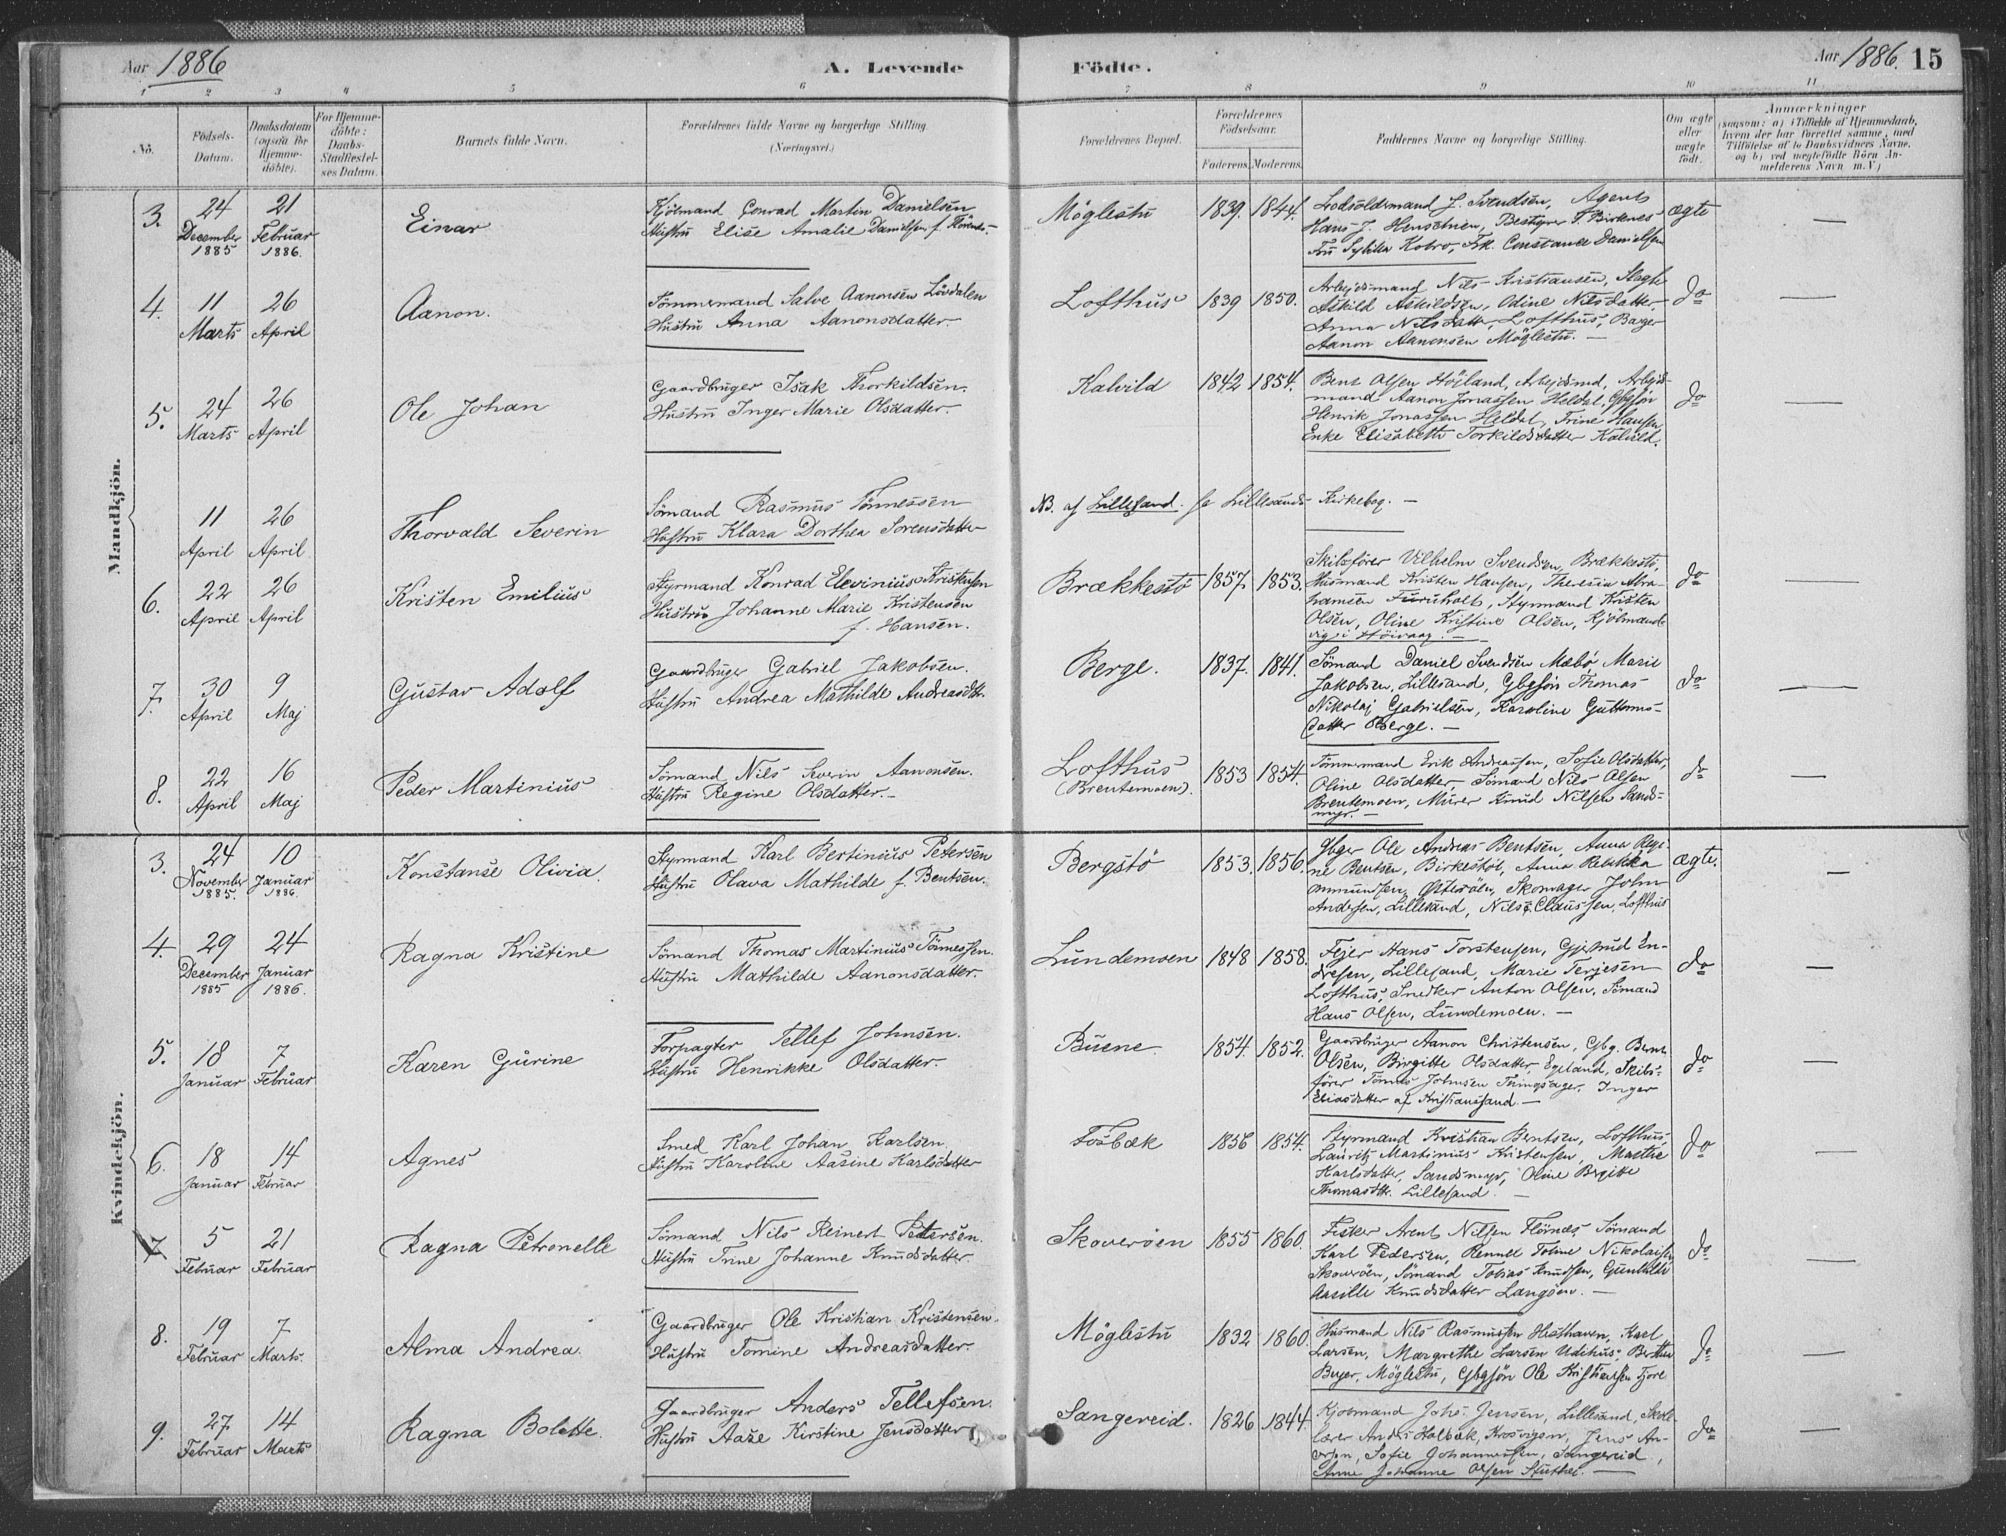 Aar 1886
A. Levende Födte.
Aar 1886. 15
1 2 3 4 5 6 7 8 9 10 11
No.
Födsels-
Datum.
Daabsdatum
(ogsaa for
Hjemme-
döbte).
For Hjemme-
döbte:
Daabs-
Stadfæstel-
ses Datum.
Barnets fulde Navn.
Forældrenes fulde Navne og borgerlige Stilling.
(Næringsvei.)
Forældrenes Bopæl.
Forældrenes
Födselsaar.
Faderens. Moderens.
Faddernes Navne og borgerlige Stilling.
Om ægte
eller
uægte
födt.
Anmærkninger
(saasom: a) i Tilfælde af Hjemmedaab,
hvem der har forrettet samme, med
Tilföielse af to Daabsvidners Navne.
og b) ved uægtefödte Börn An-
melderens Navn m.V.)
Mandkjön.
3. 24 December 1885 21 Februar 1886. Einar
Kjöbmand Conrad Martin Danielsen
Hustru Elise Amalie Danielsen f.
Möglestu 1839. 1844.
Lodsoldermand J. Svendsen, Agent
Hans J. Henschien, Bestyrer F. Birknes
Fru Sybilla Kobro, Frk. Constance Danielsen
ægte —
4. 11 Marts 26 April Aanon.
Tömmermand Salve Aanonsen Lövdalen
Hustru Anna Aanonsdatter.
Lofthus 1839 1850.
Arbeidsmand Nils Kristiansen,
Askild Askildsen, Odine Nilsdatter,
Anna Nilsdatter, Lofthus, Bager
Aanon Aanonsen Möglestu. —
do —
5. 24 Marts 26 April Ole Johan
Gaardbruger Isak Thorkildsen.
Hustru Inger Marie Olsdatter.
Kalvild 1842 1854.
Bent Olsen Höjland, Arbejdsmd, Arbejds-
mand Aanon Jonassen Heldal, Gbrsön
Henrik Jonassen Heldal, Trine Hansen,
Enke Elisabeth Torkildsdatter Kalvild.
do —
11 April 26 April Thorvald Severin
Sömand Rasmus Tönnessen
Hustru Klara Dorthea Sorensdatter
NB. af Lillesand. se Lillesands Kirkebog. —
6. 22 April 26 April Kristen Emilius
Styrmand Konrad Elevinius Kristensen
Hustru Johanne Marie Kristensen
f. Hansen.
Brækkestö 1857. 1853.
Skibsförer Vilhelm Svendsen, Brækkestö,
Husmand Kristen Hansen, Theresia Abra-
hamsen Furuholt, Styrmand Kristen
Olsen, Oline Kristine Olsen, Kjöbmands
vig i Höivaag. —
do —
7. 30 April 9 Maj Gustav Adolf
Gaardbruger Gabriel Jakobsen.
Hustru Andrea Mathilde Andreasdtr.
Berge. 1837. 1841.
Sömand Daniel Svendsen Mæbö, Marie
Jakobsen, Lillesand, Gbrsön Thomas
Nikolaj Gabrielsen, Karoline Guttorms-
datter Berge. —
do —
8. 22 April 16 Maj Peder Martinius
Sömand Nils Severin Aanonsen.
Hustru Regine Olsdatter. —
Lofthus
(Brentemoen). 1853 1854.
Tömmermand Erik Andreassen, Sofie Olsdatter,
Oline Olsdatter, Sömand Nils Olsen
Brentemoen, Murer Knud Nilsen Sands-
myr. —
do —
Kvindekjön.
3. 24 November 1885. 10 Januar 1886. Konstanse Olivia.
Styrmand Karl Bertinius Petersen
Hustru Olava Mathilde f. Bentsen.
Bergstö 1853. 1856.
Gbger Ole Andreas Bentsen, Anna Regi-
ne Bentsen, Birkestöl, Anna Rebekka
mmundsen, Österöen, Skomager John
Andersen, Lillesand, Nils Claussen, Lofthus
ægte. —
4. 29 December 1885 24 Januar 1886. Ragna Kristine
Sömand Thomas Martinius Tönnessen.
Hustru Mathilde Aanonsdatter.
Lundemoen 1848 1858.
Fejer Hans Torstensen, Gjertrud En-
dresen, Lillesand, Marie Terjesen
Lofthus, Snedker Anton Olsen, Sömand
Hans Olsen, Lundemoen. —
do —
5. 18 Januar 7 Februar Karen Gurine
Forpagter Tellef Johnsen.
Hustru Henrikke Olsdatter.
Buene. 1854. 1852.
Gaardbruger Aanon Christensen, Gbg. Bernt
Olsen, Birgitte Olsdatter Egeland, Skibs-
förer Tönnes Johnsen Tingsager. Inger
Eliasdatter af Kristianssand —
do —
6. 18 Januar 14 Februar Agnes
Smed Karl Johan Karlsen
Hustru Karoline Aasine Karlsdatter
Fosbæk 1856 1854.
Styrmand Kristian Berntsen, Lofthus,
Lauritz Martinius Kristensen, Marthe
Karlsdatter, Sandsmyr, Oline Birgitte
Thomasdtr. Lillesand. —
do —
7. 5 Februar 21 Februar Ragna Petronelle
Sömand Nils Reinert Petersen.
Hustru Trine Johanne Knudsdatter
Skoveröen 1855 1860.
Fisker Arent Nilsen Flörnæs, Sömand
Karl Pedersen, Tobine Nikolaisen
Skoveröen, Sömand Tobias Knudsen, Gunhilde
Aasille Knudsdatter Langöen. —
do —
8. 19 Februar 7 Marts. Alma Andrea.
Gaardbruger Ole Kristian Kristensen.
Hustru Tomine Andreasdatter.
Möglestu 1832 1860.
Husmand Nils Rasmussen Hesthaven, Axel
Larsen, Margrethe Larsen Udihus,
Möglestu, Gbgsön Ole Kristiansen Fjore
do —
9. 27 Februar 14 Marts Ragna Bolette.
Gaardbruger Anders Tellefsen.
Hustru Aase Kirstine Jensdatter
Sangereid. 1826 1844.
Kjöbmand Johs. Jensen, Lillesand, Skole-
lærer Anders Holbæk, Jens An-
dersen, Sofie Johannessen, Sangereid,
Anne Johanne Olsen Stuthei. —
do —